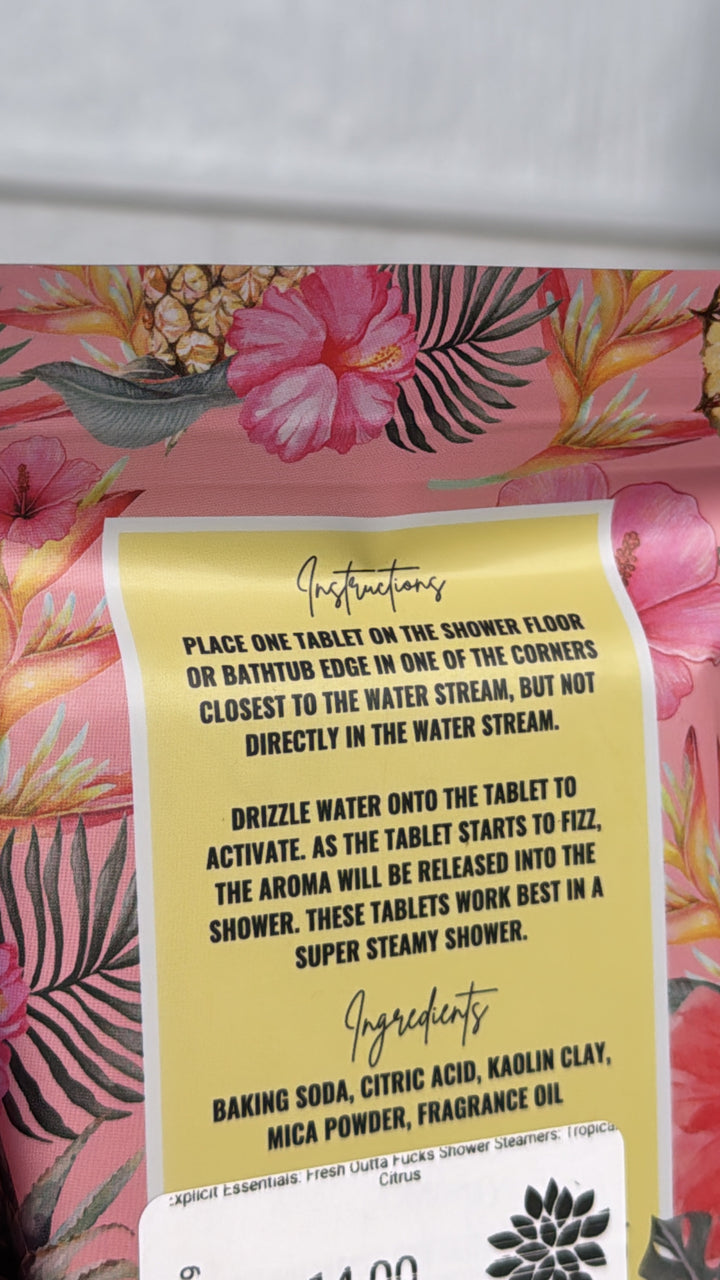 Instructions
PLACE ONE TABLET ON THE SHOWER FLOOR
OR BATHTUB EDGE IN ONE OF THE CORNERS
CLOSEST TO THE WATER STREAM, BUT NOT
DIRECTLY IN THE WATER STREAM.
DRIZZLE WATER ONTO THE TABLET TO
ACTIVATE. AS THE TABLET STARTS TO FIZZ,
THE AROMA WILL BE RELEASED INTO THE
SHOWER. THESE TABLETS WORK BEST IN A
SUPER STEAMY SHOWER.
Ingredients
BAKING SODA, CITRIC ACID, KAOLIN CLAY,
MICA POWDER, FRAGRANCE OIL
Essentials: Fresh Outta Fucks Shower Steamers: Tropica
Citrus
14.00